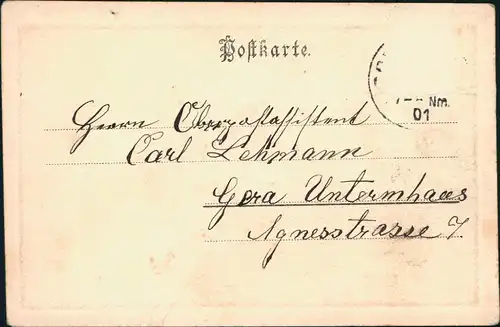 Postkarte.
Nm.
01
Herrn Oberpostassistent
Carl Lehmann
Gera Untermhaus
Agnesstrasse 7